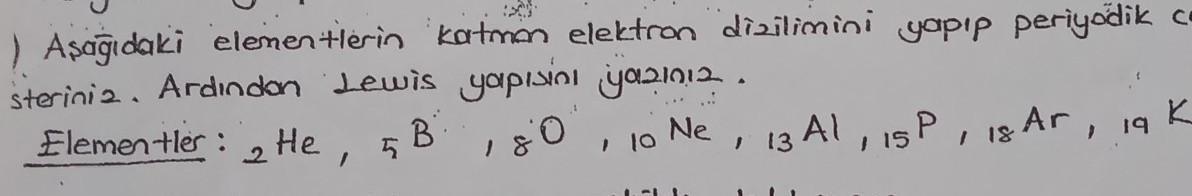 ) Aşağıdaki elementlerin katman elektron dizilimini yapıp periyodik
steriniz. Ardından Lewis yapısını yazınız.
Elementler: ₂He, ₅B, ₈O, ₁₀Ne, ₁₃Al, ₁₅P, ₁₈Ar, ₁₉K